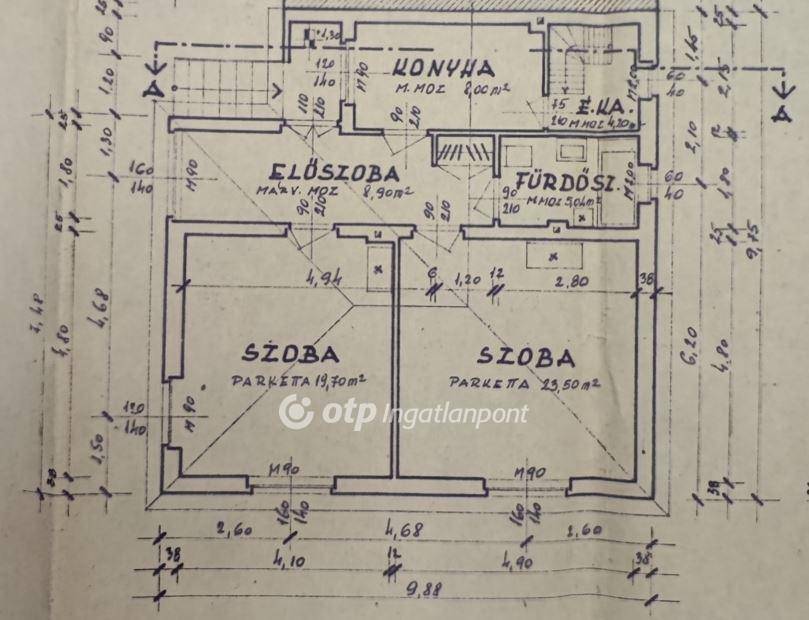 KONYHA
M. MOZ 8,00 m²
É. KA.
M MOZ 4,20
ELŐSZOBA
MÁRV. MOZ 8,90 m²
FÜRDŐSZ.
M MOZ 5,04 m²
SZOBA
PARKETTA 19,70 m²
SZOBA
PARKETTA 23,50 m²
otp Ingatlanpont
A
A
+1,30
120
140
M 90
90
210
110
210
75
210
60
40
160
140
M 90
90
210
90
210
90
210
60
40
4,94
6
1,20
12
2,80
38
120
140
M 90
M 90
M 90
160
140
160
140
90
1,20
1,30
25
1,80
25
4,68
4,80
7,48
1,50
38
25
2,15
2,10
12
4,80
25
9,75
6,20
4,80
38
2,60
4,68
2,60
38
4,10
12
4,90
38
9,88